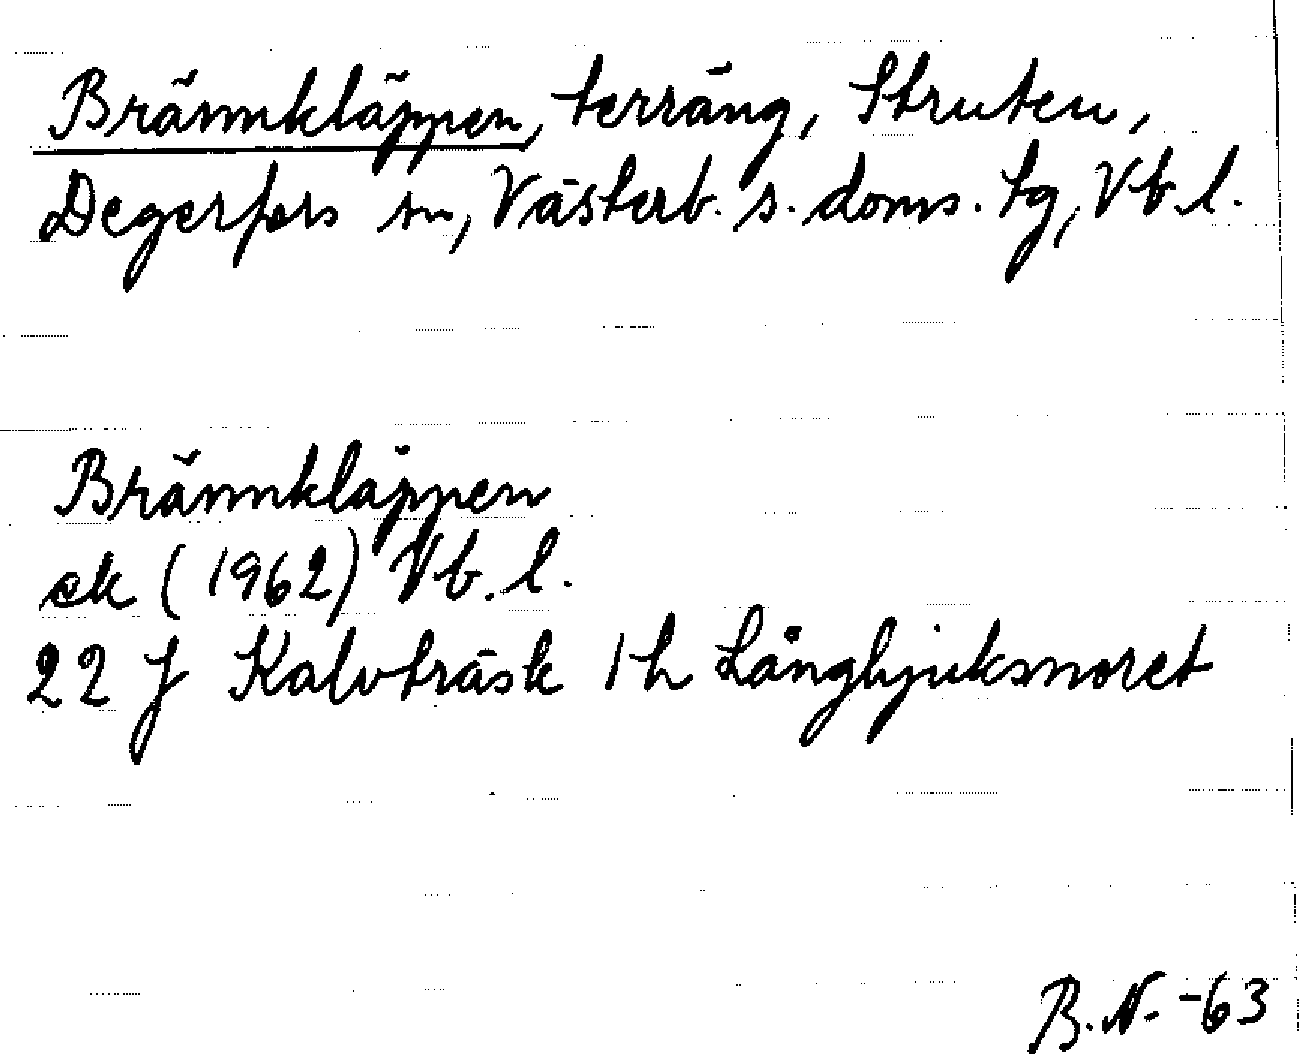 Brännkläppen, terräng, Struten,
Degerfors sn, Västerb. s. doms. tg, Vb. l.
Brännkläppen
ek (1962) Vb. l.
22 J Kalvträsk 1 h Långhjuksmoret
B. N. -63